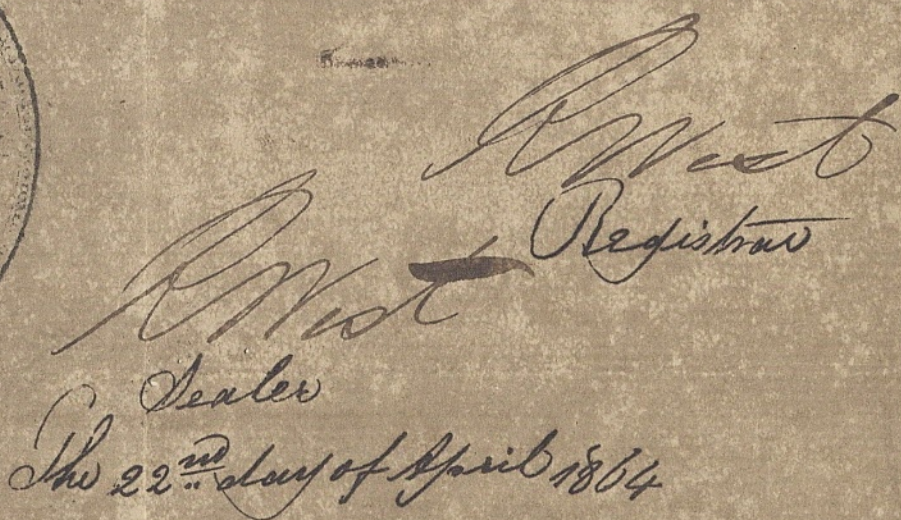 R West
Registrar
R West
Sealer
The 22nd day of April 1864